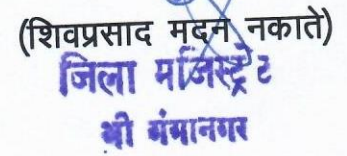 (शिवप्रसाद मदन नकाते)
जिला मजिस्ट्रेट
श्री गंगानगर